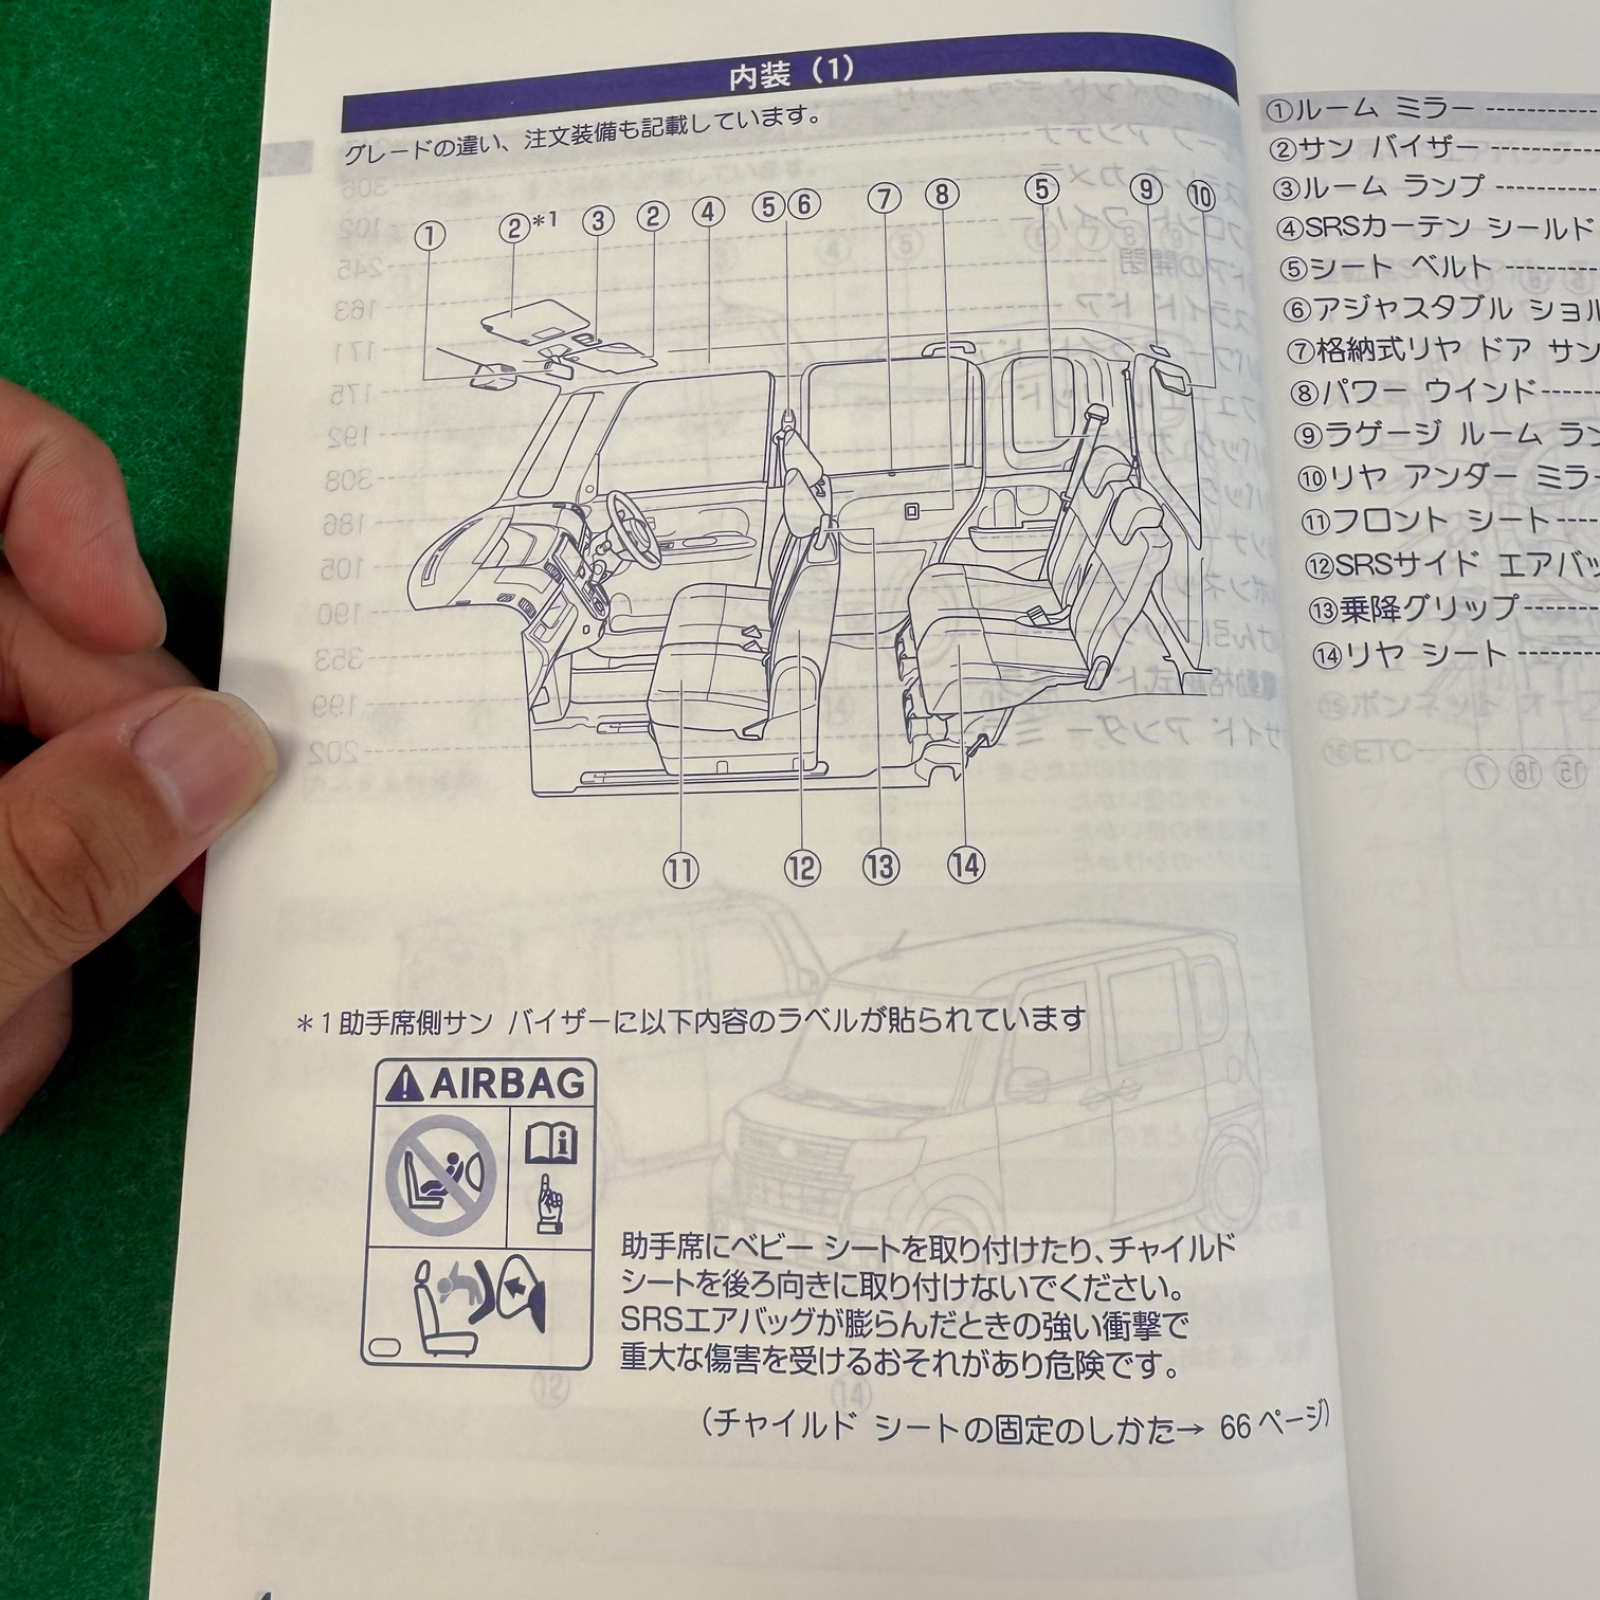 内装（1）
グレードの違い、注文装備も記載しています。
① ②*1 ③ ② ④ ⑤⑥ ⑦ ⑧ ⑤ ⑨ ⑩
⑪ ⑫ ⑬ ⑭
＊1助手席側サン バイザーに以下内容のラベルが貼られています
AIRBAG
助手席にベビー シートを取り付けたり、チャイルド
シートを後ろ向きに取り付けないでください。
SRSエアバッグが膨らんだときの強い衝撃で
重大な傷害を受けるおそれがあり危険です。
（チャイルド シートの固定のしかた→ 66ページ）
①ルーム ミラー
②サン バイザー
③ルーム ランプ
④SRSカーテン シールド
⑤シート ベルト
⑥アジャスタブル ショル
⑦格納式リヤ ドア サン
⑧パワー ウインド
⑨ラゲージ ルーム ラン
⑩リヤ アンダー ミラー
⑪フロント シート
⑫SRSサイド エアバッ
⑬乗降グリップ
⑭リヤ シート